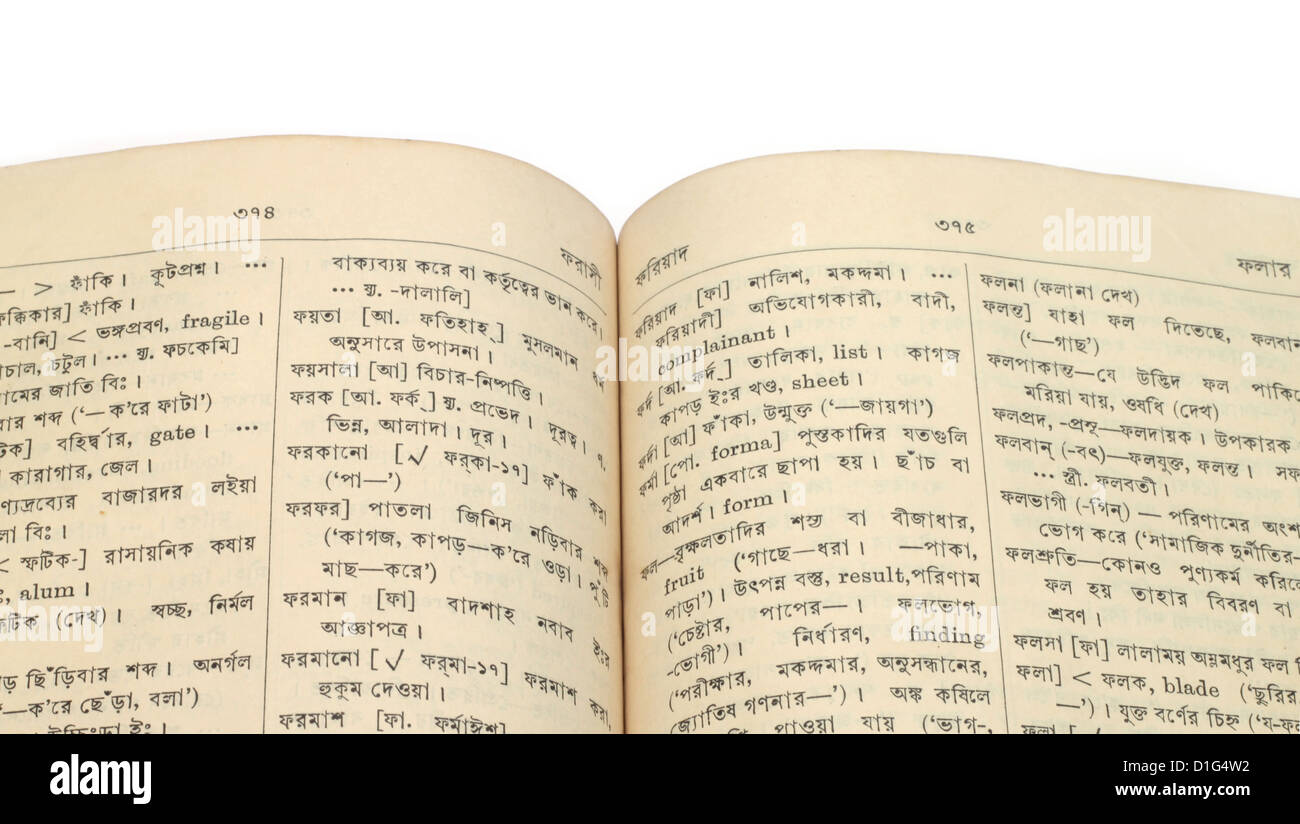 ৩৭৪
ফরাসী
— > ফাঁকি। কূটপ্রশ্ন। ···
ফাঁকি।
-বানি] < ভঙ্গপ্রবণ, fragile।
চটুল। ··· য্য. ফচকেমি]
জাতি বিঃ।
শব্দ (‘—ক’রে ফাটা’)
বহির্দ্বার, gate। ···
কারাগার, জেল।
বাজারদর লইয়া
বিঃ।
< স্ফটিক-] রাসায়নিক কষায়
alum।
(দেখ)। স্বচ্ছ, নির্মল
ছিঁড়িবার শব্দ। অনর্গল
—ক’রে ছেঁড়া, বলা’)
বাক্যব্যয় করে বা কর্তৃত্বের ভান করে।
··· য্য. -দালালি]
ফয়তা [আ. ফতিহাহ্] মুসলমান
অনুসারে উপাসনা।
ফয়সালা [আ] বিচার-নিষ্পত্তি।
ফরক [আ. ফর্ক্] য্য. প্রভেদ। দূরত্ব। ণ.
ভিন্ন, আলাদা। দূর।
ফরকানো [√ ফর্‌কা-১৭] ফাঁক করা
(‘পা—’)
ফরফর] পাতলা জিনিস নড়িবার শব্দ
(‘কাগজ, কাপড়—ক’রে ওড়া। পুঁটি
মাছ—করে’)
ফরমান [ফা] বাদশাহ নবাব ইঃর
আজ্ঞাপত্র।
ফরমানো [√ ফর্‌মা-১৭] ফরমাশ করা,
হুকুম দেওয়া।
ফরমাশ [ফা. ফর্মাঈশ]
৩৭৫
ফরিয়াদ
ফলার
ফরিয়াদ [ফা] নালিশ, মকদ্দমা। ···
ফরিয়াদী] অভিযোগকারী, বাদী,
complainant।
ফর্দ [আ. ফর্দ্] তালিকা, list। কাগজ
কাপড় ইঃর খণ্ড, sheet।
ফর্দা [আ] ফাঁকা, উন্মুক্ত (‘—জায়গা’)
ফর্মা [পো. forma] পুস্তকাদির যতগুলি
পৃষ্ঠা একবারে ছাপা হয়। ছাঁচ বা
আদর্শ। form
ফল—বৃক্ষলতাদির শস্য বা বীজাধার,
fruit (‘গাছে—ধরা। —পাকা,
পাড়া’)। উৎপন্ন বস্তু, result, পরিণাম
(‘চেষ্টার, পাপের—। ফলভোগ,
-ভোগী’)। নির্ধারণ, finding
(‘পরীক্ষার, মকদ্দমার, অনুসন্ধানের,
(জ্যোতিষ গণনার—’)। অঙ্ক কষিলে
পাওয়া যায় (‘ভাগ-,
ফলনা (ফলানা দেখ)
ফলন্ত] যাহা ফল দিতেছে, ফলবান
(‘—গাছ’)
ফলপাকান্ত—যে উদ্ভিদ ফল পাকিলে
মরিয়া যায়, ওষধি (দেখ)
ফলপ্রদ, -প্রসূ—ফলদায়ক। উপকারক
ফলবান্ (-বৎ)—ফলযুক্ত, ফলন্ত।
··· স্ত্রী. ফলবতী।
ফলভাগী (-গিন্) — পরিণামের অংশ
ভোগ করে (‘সামাজিক দুর্নীতির-
ফলশ্রুতি—কোনও পুণ্যকর্ম করিলে
ফল হয় তাহার বিবরণ বা
শ্রবণ।
ফলসা [ফা] লালাময় অম্লমধুর ফল
ফলা] < ফলক, blade (‘ছুরির
—’)। যুক্ত বর্ণের চিহ্ন (‘য-ফলা
ফলা
alamy
alamy
Image ID: D1G4W2
www.alamy.com